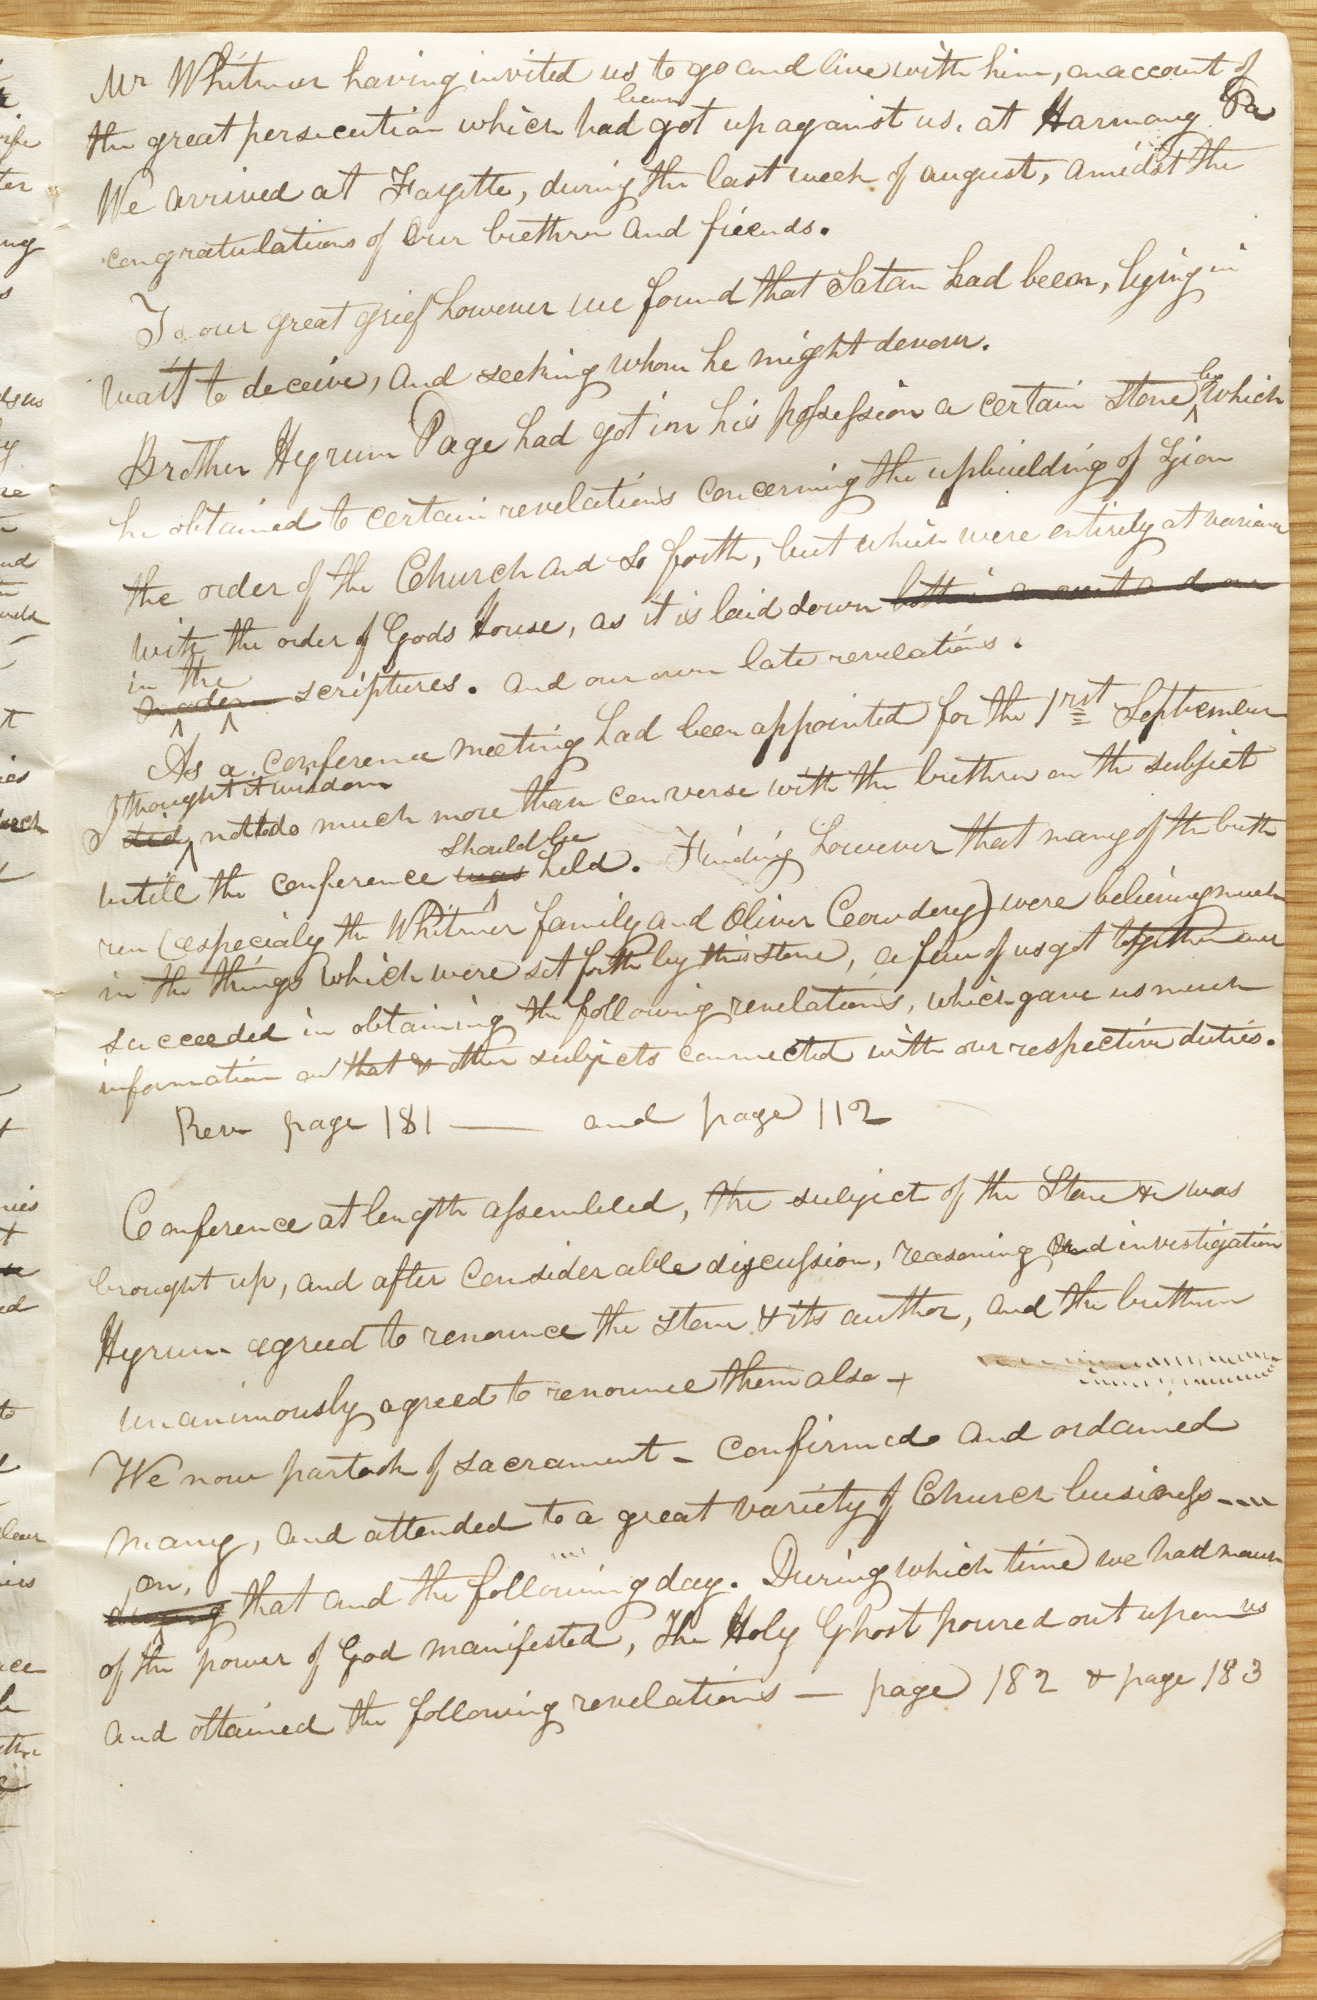 Mr Whitmer having invited us to go and live with him, on account of
the great persecution which had been got up against us, at Harmony Pa
We arrived at Fayette, during the last week of august, amidst the
congratulations of our brethren and friends.
To our great grief however we found that Satan had been, lying in
wait to deceive, and seeking whom he might devour.
Brother Hyrum Page had got in his possession a certain stone by which
he obtained to certain revelations concerning the upbuilding of Zion
the order of the Church and so forth, but which were entirely at variance
with the order of Gods House, as it is laid down both in ancient and our
in the
modern scriptures. and our own late revelations.
As a conference meeting had been appointed for the 1rst September
I thought it wisdom
did not to do much more than converse with the brethren on the subject
untill the conference was should be held. Finding however that many of the breth
ren (especialy the Whitmer family and Oliver Cowdery) were believing much
in the things which were set forth by this stone, a few of us got together and
succeeded in obtaining the following revelations, which gave us much
information on that & other subjects connected with our respective duties.
Rev page 181 — and page 112
Conference at length assembled, the subject of the Stone &c was
brought up, and after considerable discussion, reasoning and investigation
Hyrum agreed to renounce the stone & its author, and the brethren
unanimously agreed to renounce them also +
We now partook of sacrament - confirmed and ordained
many, and attended to a great variety of Church business
on,
during that and the following day. During which time we had much
of the power of God manifested, the Holy Ghost poured out upon us
and obtained the following revelations — page 182 & page 183